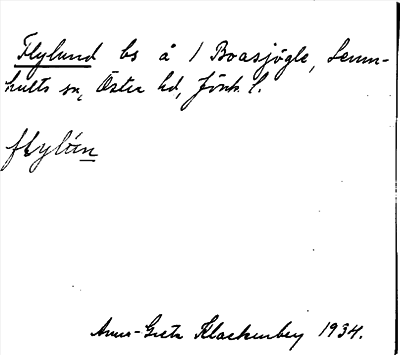 Flylund bs å 1 Boasjögle, Lemn-
hults sn, Öster hd, Jönk. l.
flylún
Anna-Greta Klackenberg 1934.